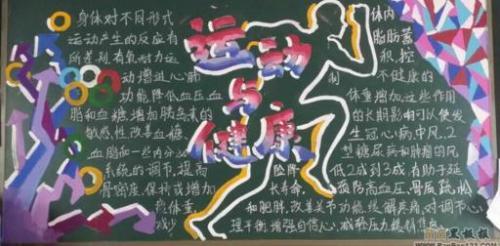 运动
与
健康
身体对不同形式
运动产生的反应有
所差别,有氧耐力运
动增进心肺
功能,降低血压,血
脂和血糖,增加胰岛素的
敏感性,改善血糖,
血脂和一些内分泌
系统的调节,提高
骨密度,保持或增加
瘦体重,
减少
体内
脂肪蓄
积,控
制
不健康的
体重增加,这些作用
的长期影响可以使发
生冠心病,中风,2
型糖尿病和肿瘤的风
险降
低2成到3成,有助于延
长寿命,
预防高血压,骨质疏松
和肥胖,改善关节功能,缓解疼痛,对调节心
理平衡,增强自信心,减轻压力